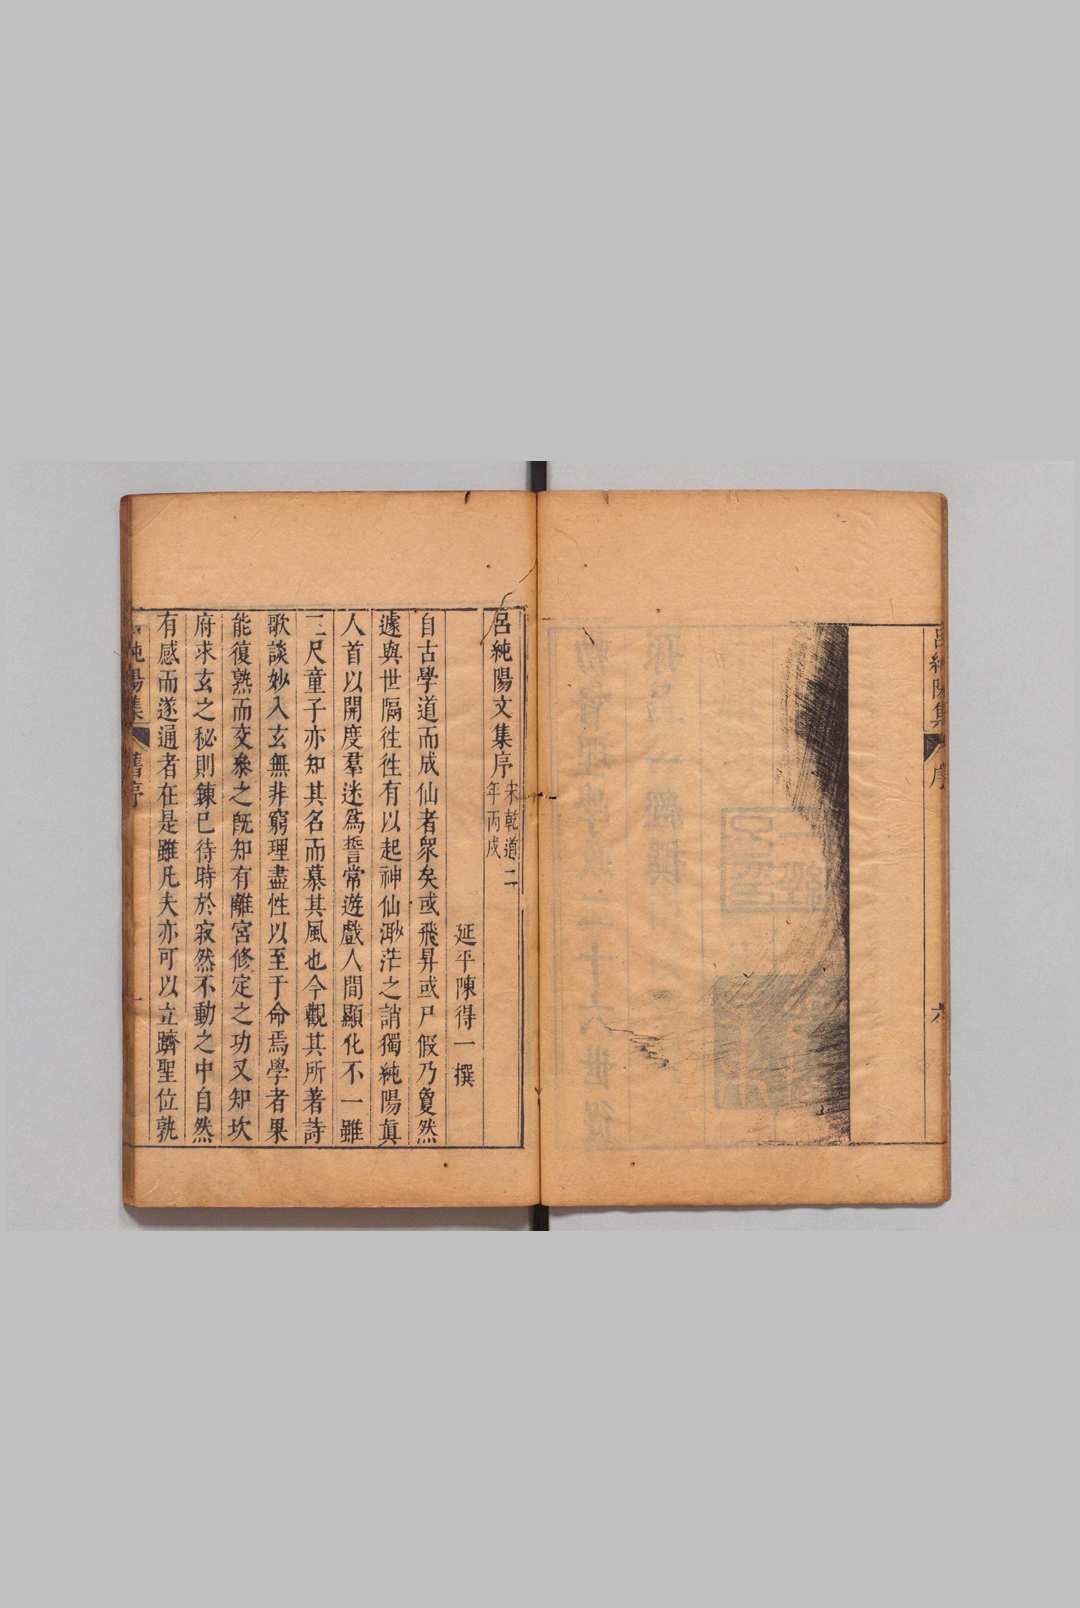 呂純陽集
序
六
呂純陽文集序宋乾道二年丙戌
延平陳得一撰
自古學道而成仙者衆矣或飛昇或尸假乃敻然
遽與世隔徃徃有以起神仙渺茫之誚獨純陽眞
人首以開度羣迷爲誓常遊戲人間顯化不一雖
三尺童子亦知其名而慕其風也今觀其所著詩
歌談妙入玄無非窮理盡性以至于命焉學者果
能復熟而交叅之旣知有離宮修定之功又知坎
府求玄之秘則鍊已待時於寂然不動之中自然
有感而遂通者在是雖凡夫亦可以立躋聖位孰
純陽集
舊序
一